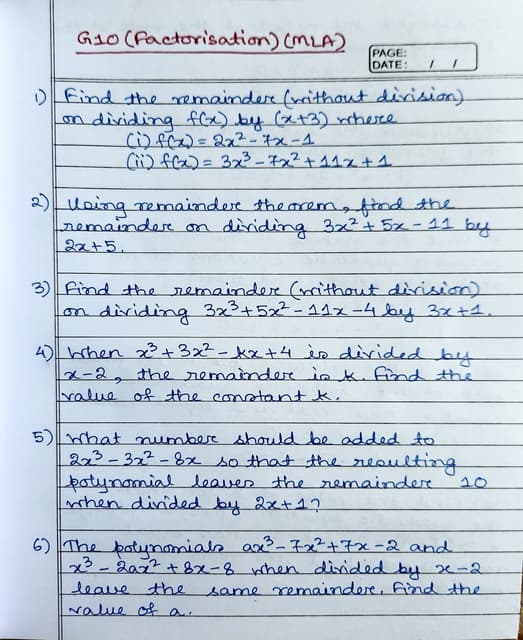 G10 (Factorisation) (MLA)
PAGE:
DATE: / /
1) Find the remainder (without division)
on dividing f(x) by (x+3) where
(i) f(x) = 2x² - 7x - 1
(ii) f(x) = 3x³ - 7x² + 11x + 1
2) Using remainder theorem, find the
remainder on dividing 3x² + 5x - 11 by
2x + 5.
3) Find the remainder (without division)
on dividing 3x³ + 5x² - 11x - 4 by 3x + 1.
4) When x³ + 3x² - kx + 4 is divided by
x - 2, the remainder is k. Find the
value of the constant k.
5) What number should be added to
2x³ - 3x² - 8x so that the resulting
polynomial leaves the remainder 10
when divided by 2x + 1?
6) The polynomials ax³ - 7x² + 7x - 2 and
x³ - 2ax² + 8x - 8 when divided by x - 2
leave the same remainder. Find the
value of a.